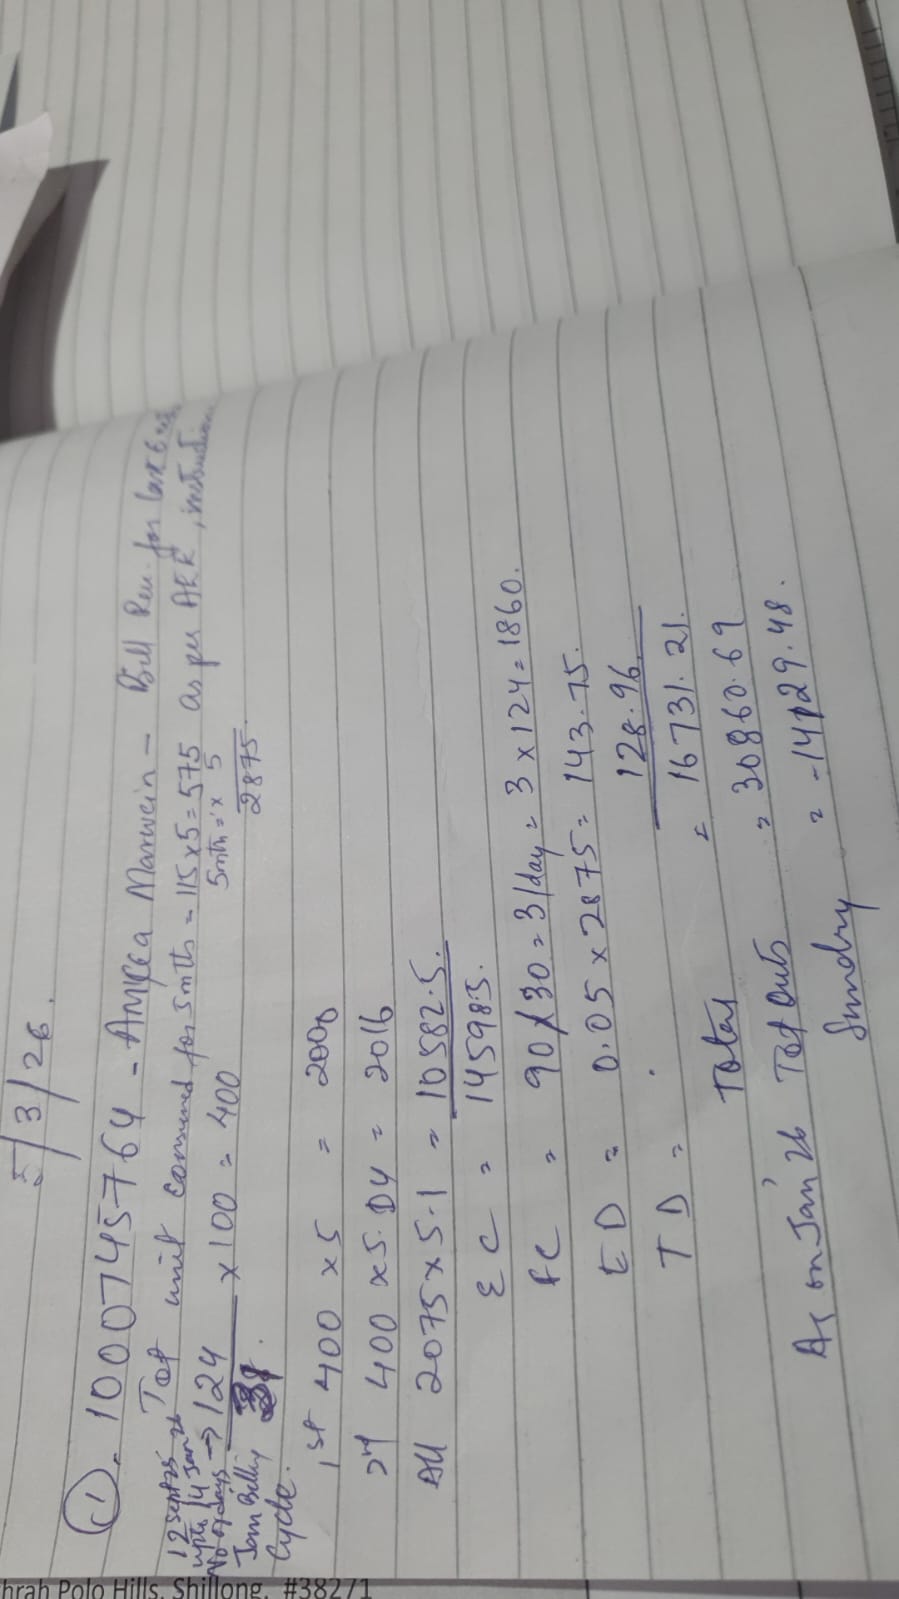 5/3/26.
①. 1000745764 - Ampea Marwein - Bill Rev. for last 6 mth
12 Sept 25 Tot unit consumed for 5mths = 115 x 5 = 575 as per AEE, instruction
upto 14 Jan 26 5mth = x 5
No of days → 124 x 100 = 400 2875.
Jan Billing
Cycle.
1st 400 x 5 = 2000
2nd 400 x 5.04 = 2016
All 2075 x 5.1 = 10582.5.
EC = 14598.5.
FC = 90/30 = 3/day = 3 x 124 = 1860.
ED = 0.05 x 2875 = 143.75.
TD = . 128.96
Total = 16731.21.
As on Jan'26 Tot Outs = 30860.69
Sundry = -14129.48.
hrah Polo Hills, Shillong. #38271